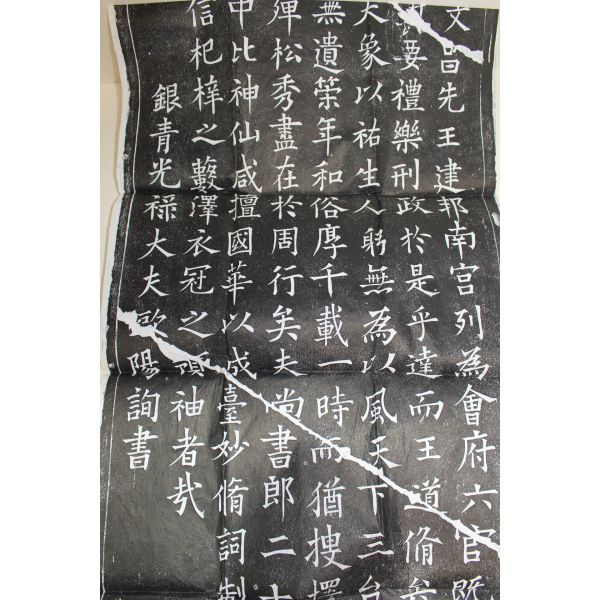 文昌先王建邦南宮列為會府六官既
其要禮樂刑政於是乎達而王道脩矣
大象以祐生人躬無為以風天下三台
無遺筞年和俗厚千載一時而猶搜擇
殫松秀盡在於周行矣夫尚書郎二十
中比神仙咸擅國華以成臺妙脩詞制
信杞梓之藪澤衣冠之領袖者哉
銀青光祿大夫歐陽詢書